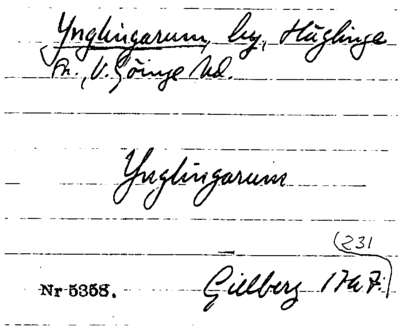 Ynglingarum, by, Häglinge
sn., V. Göinge hd.
Ynglingarum
231
Nr 5358.
Gillberg 1767.